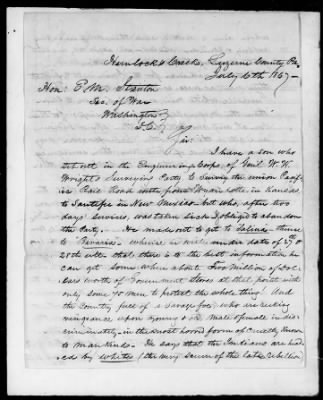 Hemlock Creek, Luzerne County Pa,
July 10th 1867—
Hon. E. M. Stanton
Sec. of War
Washington
D.C.
Sir:
I have a son who
set out in the Engineering Corps, of Genl W. W.
Wright's Surveying Party to Survey the union Pacif-
ic Rail Road route from Wyandotte in Kansas
to Santefee in New Mexico but who, after two
days services, was taken sick & obliged to abandon
the Party. He made out to get to Salina thence
to whence in under date of 27th &
28th ult. that there is to the best information he
can get some where about Two Million of Dol-
lars worth of Government Stores at that point with
only some 70 men to protect the whole thing! And
the Country full of a Savage foe, who is seeking
vengeance upon young & old Male & female in dis-
criminately, in the most horrid form of Cruelty known
to Mankind. He says that the Indians are head-
ed by whites (the very Scum of the late rebellion